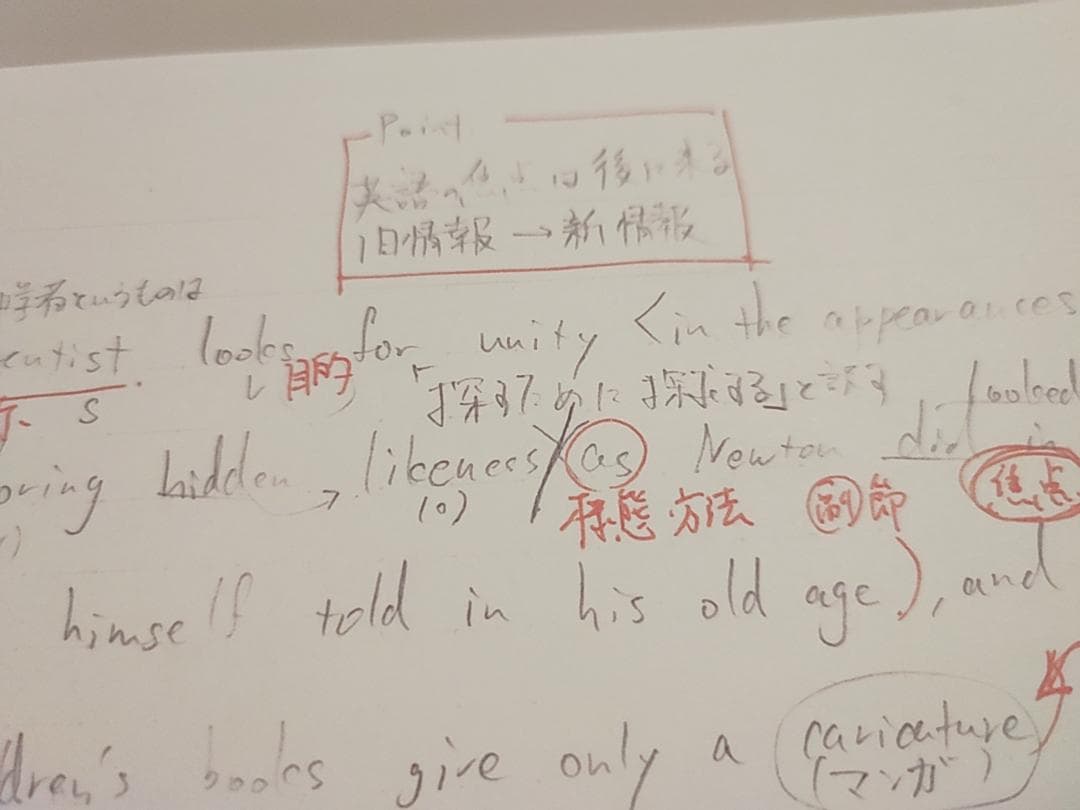 Point
英語の焦点は後に来る
旧情報→新情報
学者というものは
entist looks for unity <in the appearances
S 目的 「探すために探求する」と訳す looked
oring hidden likeness as Newton did in
(O) 様態 方法 副節 焦点
himself told in his old age), and
dren's books give only a caricature
(マンガ)